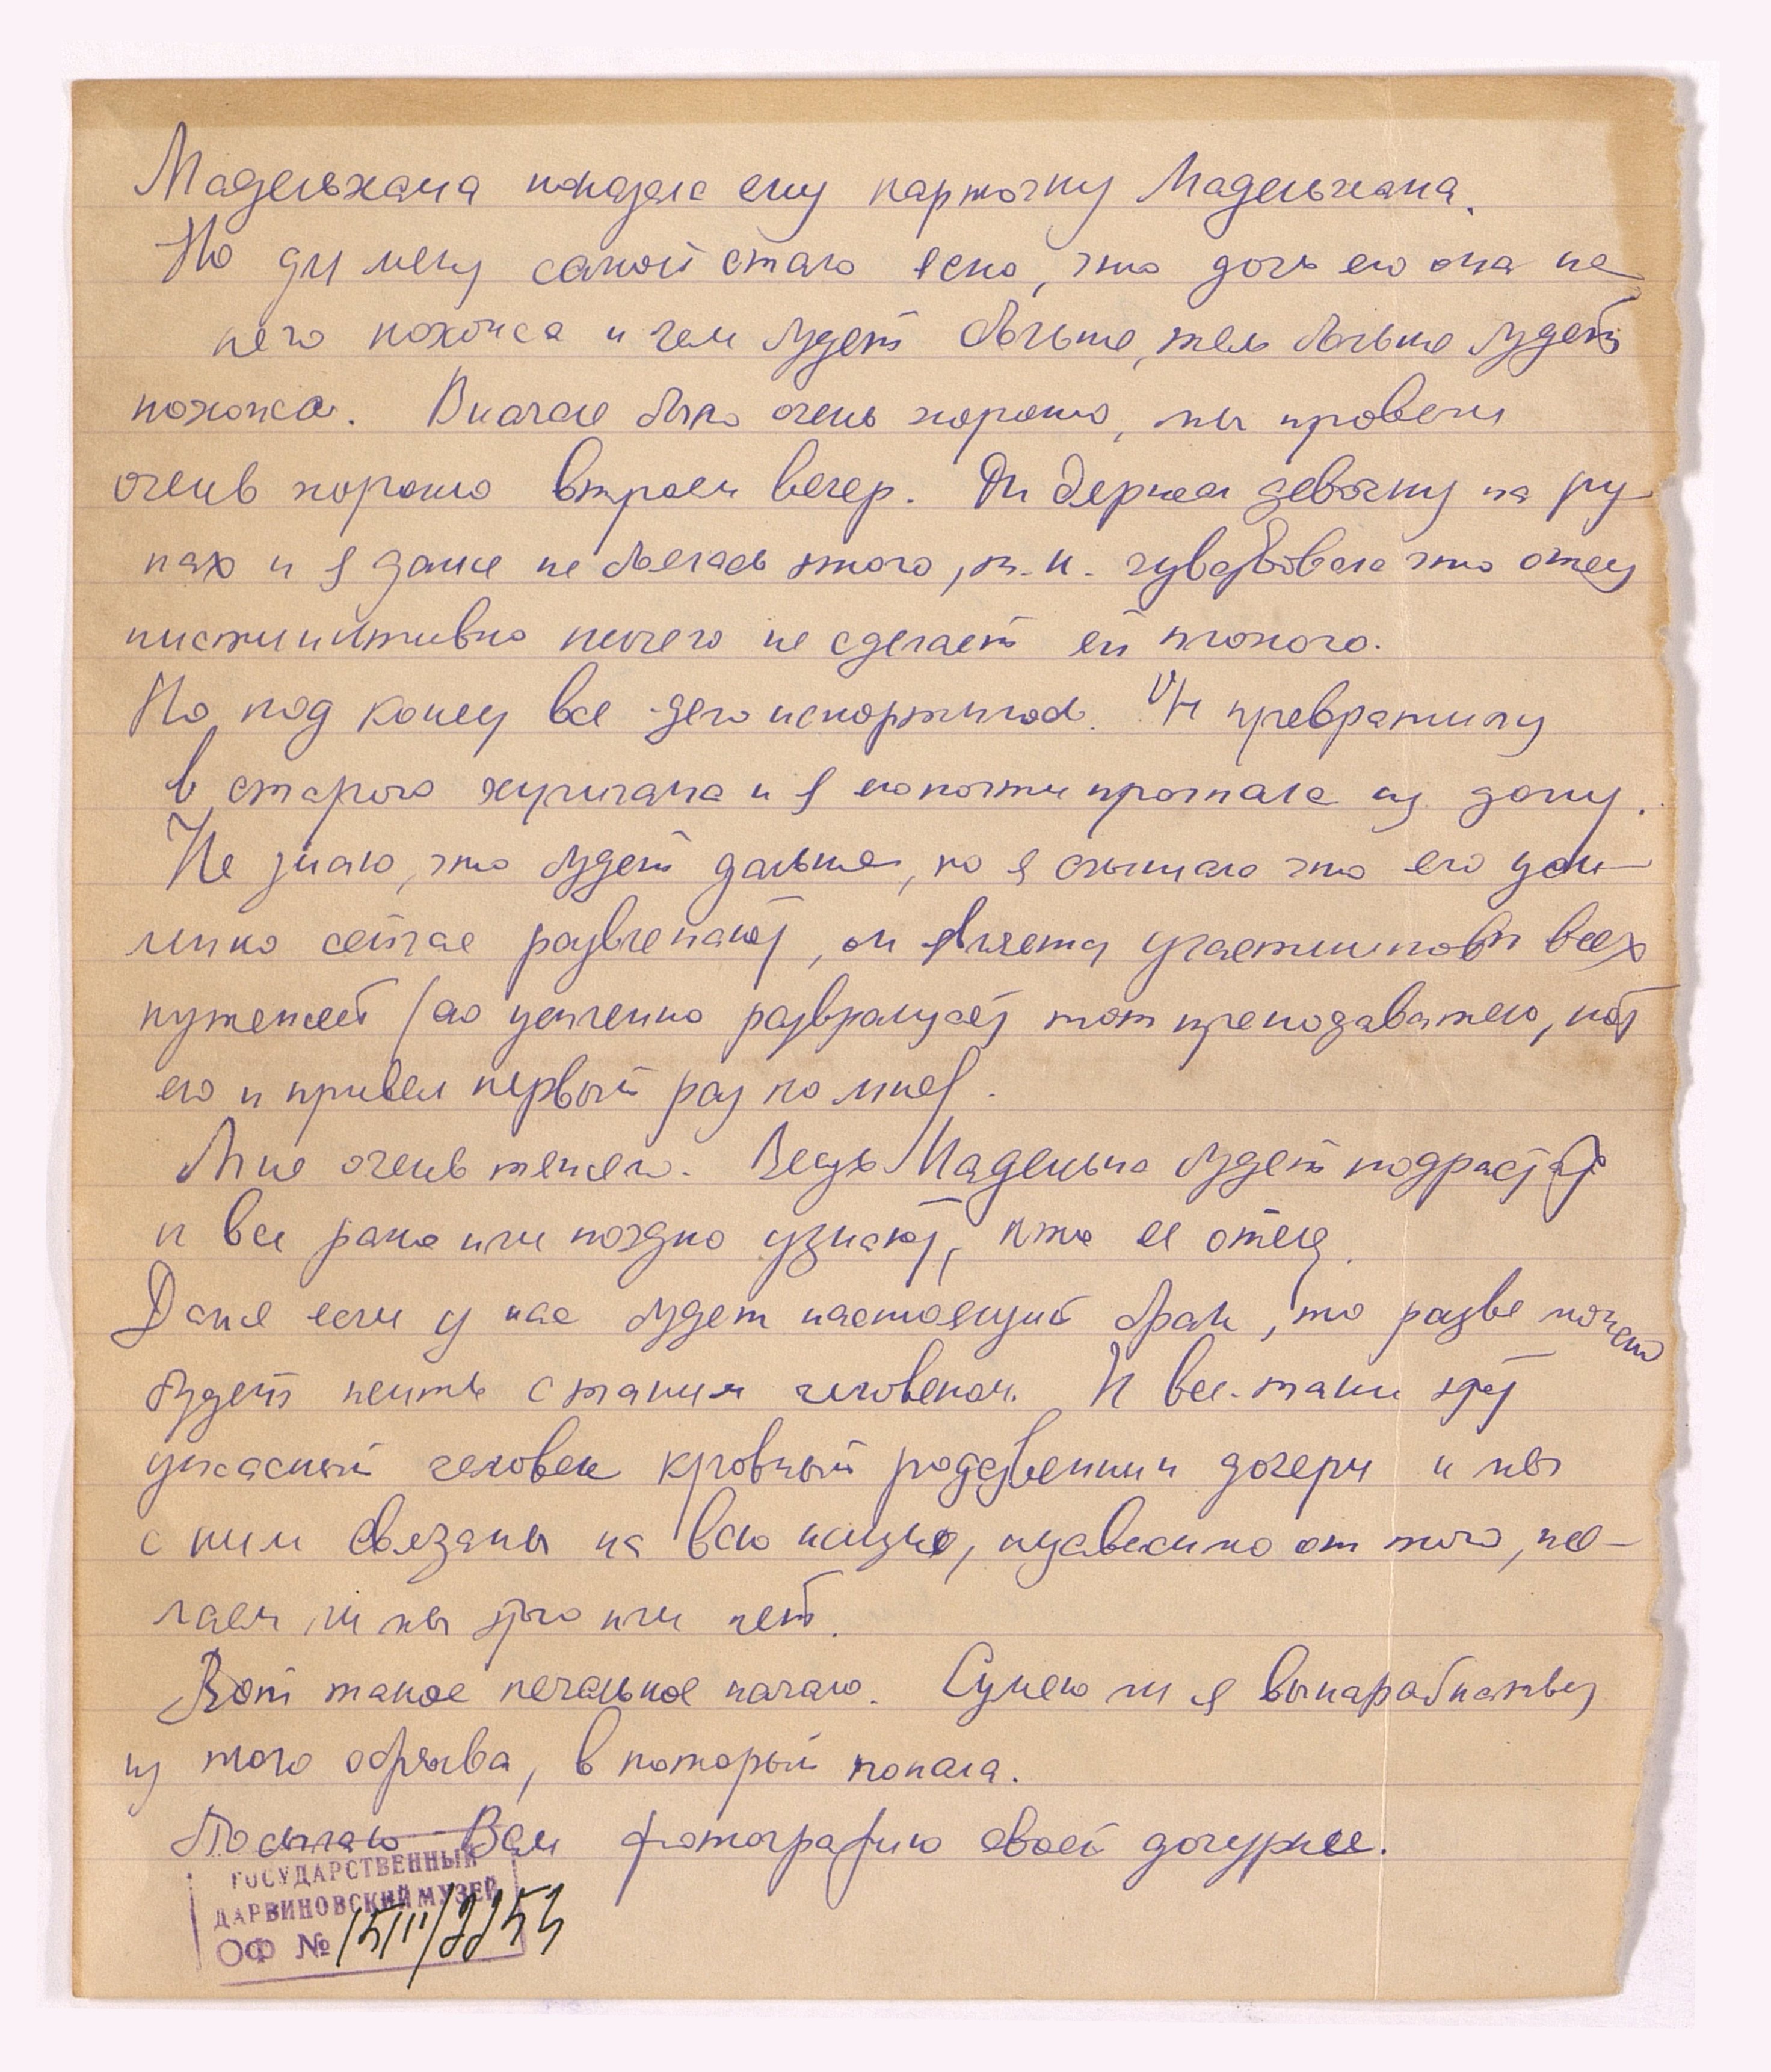 Мадельхана показала ему карточку Мадельхана.
Но для меня самой стало ясно, что дочь его она на
него похожа и чем будет больше, тем больше будет
похожа. Вначале было очень хорошо, мы провели
очень хорошо втроем вечер. Он держал девочку на ру-
ках и я даже не боялась этого, т.к. чувствовала что отец
инстинктивно ничего не сделает ей плохого.
Но под конец все дело испортилось. Он превратился
в старого хулигана и я его почти прогнала из дому.
Не знаю, что будет дальше, но я слышала что его уси-
ленно сейчас развлекают, он является участником всех
кутежей (его усиленно развращает тот преподаватель, кот
его и привел первый раз ко мне).
Мне очень тяжело. Ведь Маделына будет подрастать
и все рано или поздно узнают, кто ее отец.
Даже если у нас будет настоящий брак, то разве можно
будет жить с таким человеком. И все-таки этот
ужасный человек кровный родственник дочери и мы
с ним связаны на всю жизнь, независимо от того, же-
лаем ли мы этого или нет.
Вот такое печальное начало. Сумею ли я выкарабкаться
из того обрыва, в который попала.
Посылаю Вам фотографию своей дочурки.
ГОСУДАРСТВЕННЫЙ
ДАРВИНОВСКИЙ МУЗЕЙ
ОФ №